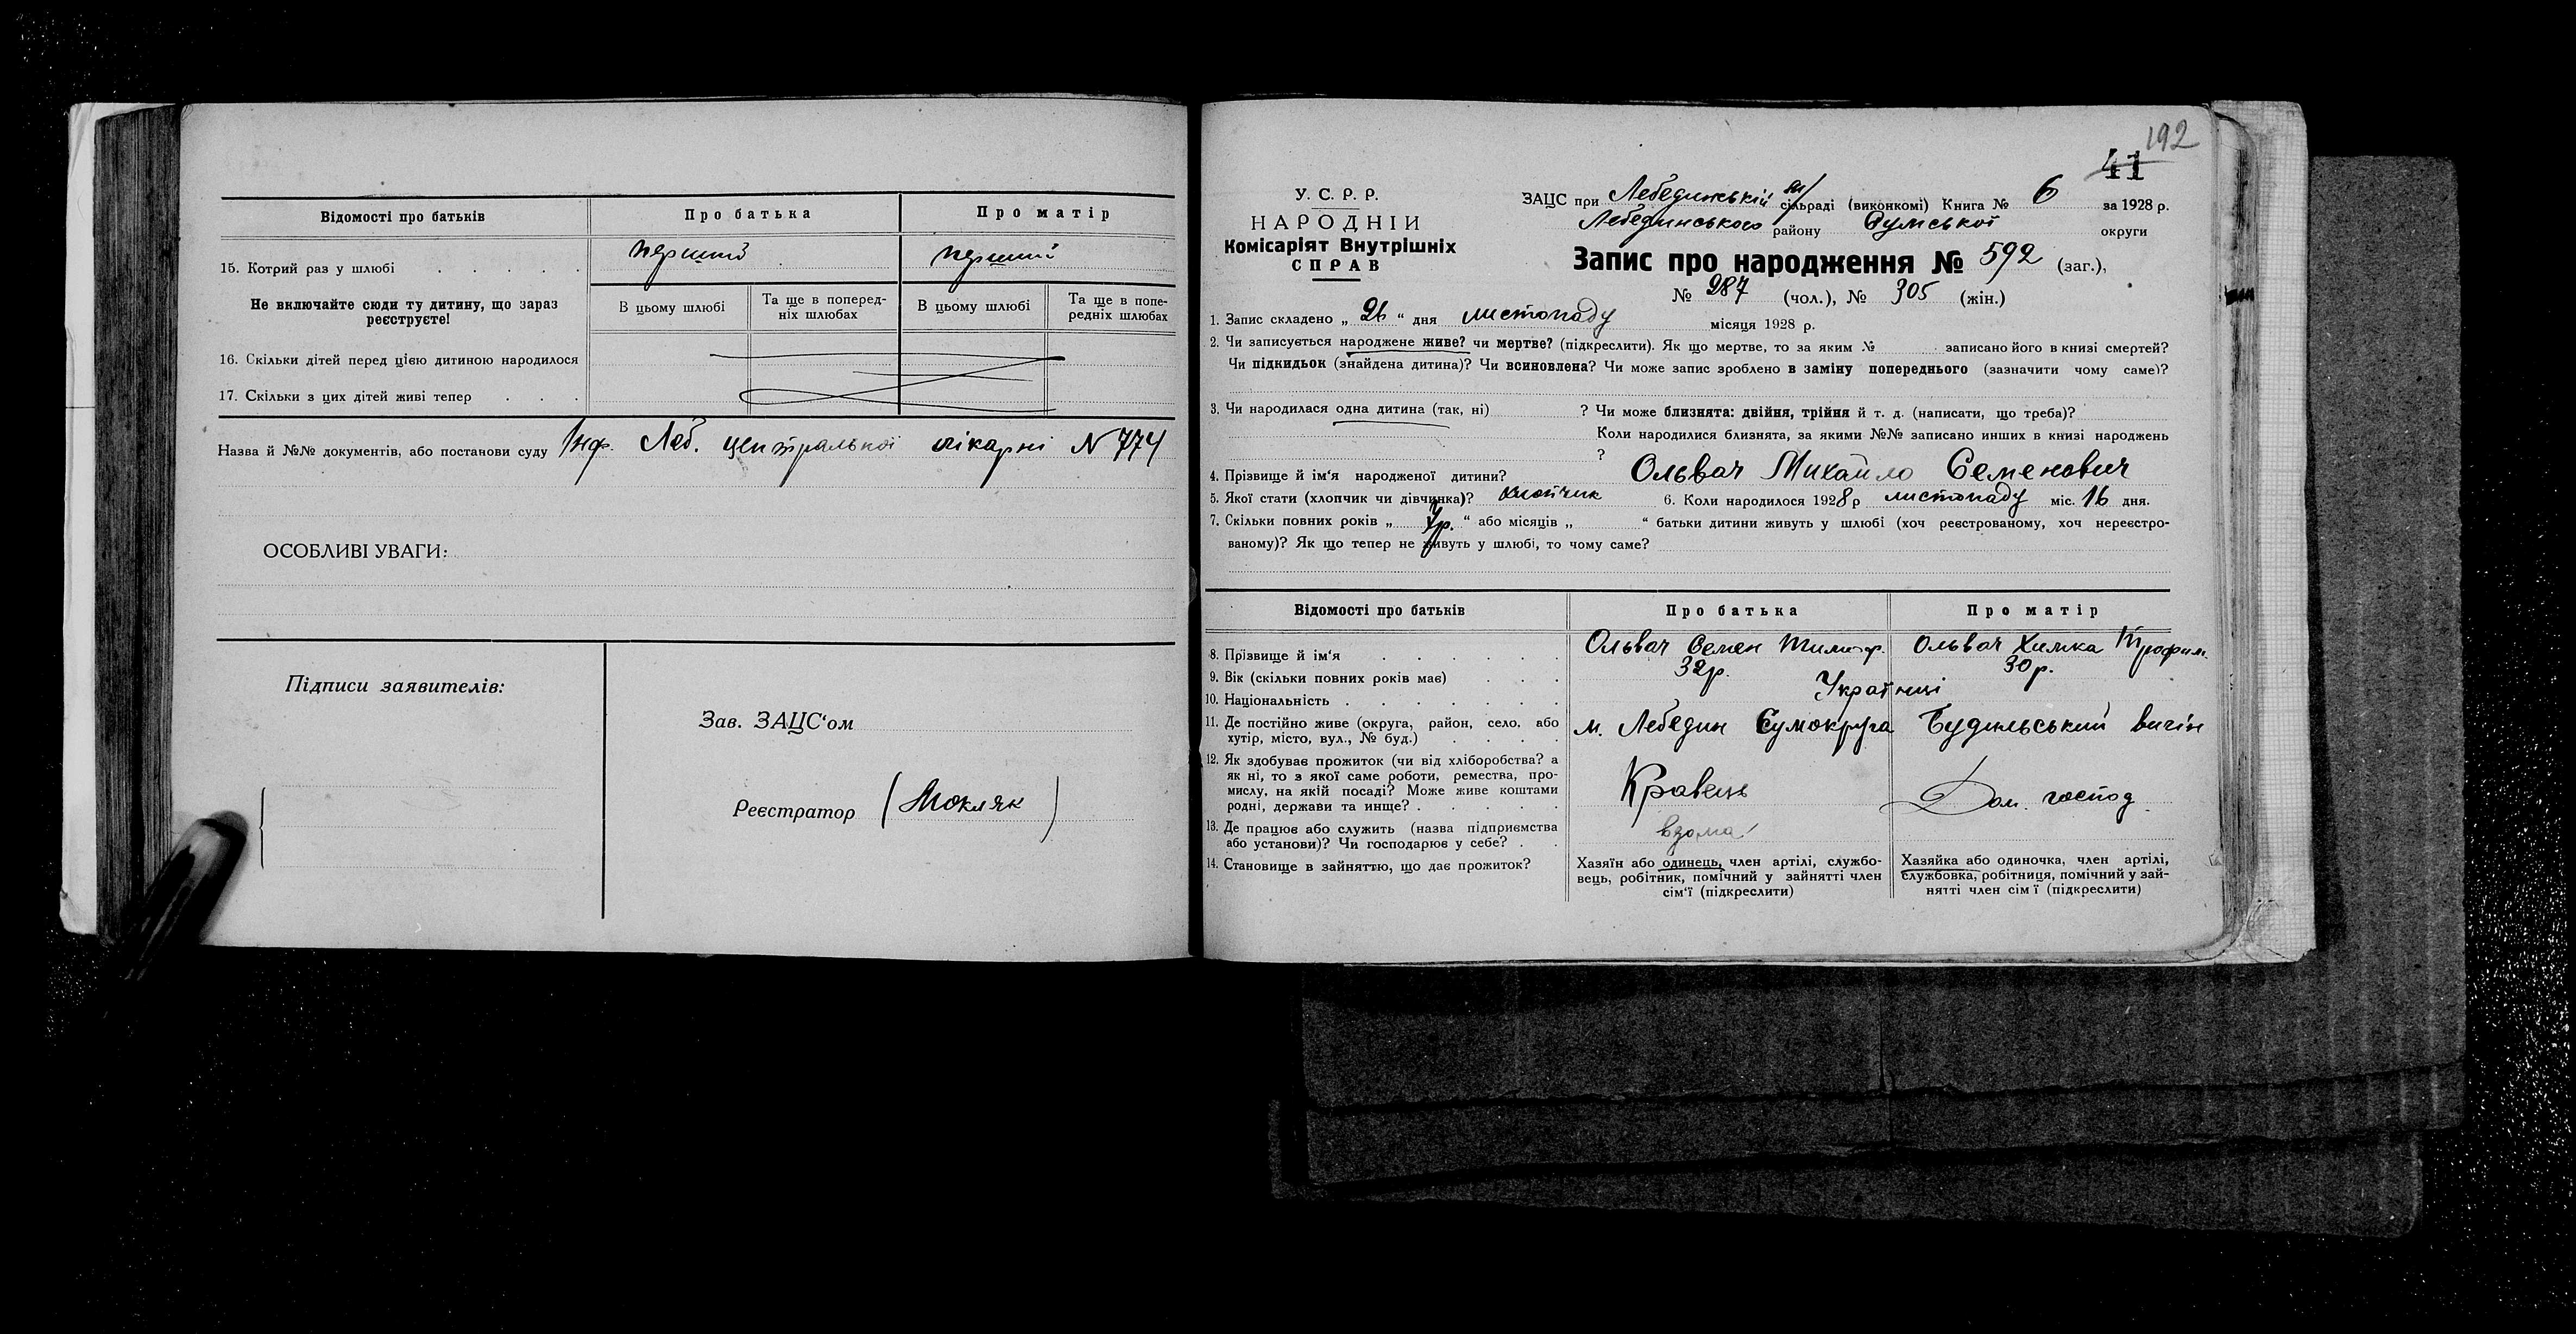 Відомості про батьків Про батька Про матір
15. Котрий раз у шлюбі . . . . . перший перший
Не включайте сюди ту дитину, що зараз реєструєте!
В цьому шлюбі Та ще в поперед-ніх шлюбах В цьому шлюбі Та ще в попе-редніх шлюбах
16. Скільки дітей перед цією дитиною народилося
17. Скільки з цих дітей живі тепер . . .
Назва й №№ документів, або постанови суду Інф. Леб. центральної лікарні N 774
ОСОБЛИВІ УВАГИ:
Підписи заявителів:
Зав. ЗАЦС'ом
Реєстратор (Мокляк)
192
41
У. С. Р. Р.
НАРОДНІЙ
Комісаріят Внутрішніх
СПРАВ
ЗАЦС при Лебединській сільраді (виконкомі) Книга № 6 за 1928 р.
Лебединського району Сумської округи
Запис про народження № 592 (заг.),
№ 287 (чол.), № 305 (жін.)
1. Запис складено „ 26 “ дня листопаду місяця 1928 р.
2. Чи записується народжене живе? чи мертве? (підкреслити). Як що мертве, то за яким № записано його в книзі смертей?
Чи підкидьок (знайдена дитина)? Чи всиновлена? Чи може запис зроблено в заміну попереднього (зазначити чому саме)?
3. Чи народилася одна дитина (так, ні) ? Чи може близнята: двійня, трійня й т. д. (написати, що треба)?
Коли народилися близнята, за якими №№ записано инших в книзі народжень
?
4. Прізвище й ім'я народженої дитини? Ольвач Михайло Семенович
5. Якої стати (хлопчик чи дівчинка)? хлопчик 6. Коли народилося 1928 р листопаду міс. 16 дня.
7. Скільки повних років „ р. “ або місяців „ “ батьки дитини живуть у шлюбі (хоч реєстрованому, хоч нереєстро-
ваному)? Як що тепер не живуть у шлюбі, то чому саме?
Відомості про батьків Про батька Про матір
8. Прізвище й ім'я . . . . . . Ольвач Семен Тимоф. Ольвач Химка Трофим.
9. Вік (скільки повних років має) . . . 32р. 30р.
10. Національність . . . . . . . Українці
11. Де постійно живе (округа, район, село, або
хутір, місто, вул., № буд.) . . . . м. Лебедин Сумокруга Будильський вигін
12. Як здобуває прожиток (чи від хліборобства? а
як ні, то з якої саме роботи, ремества, про-
мислу, на якій посаді? Може живе коштами
родні, держави та инще? . . . . . Кравець Дом. господ.
13. Де працює або служить (назва підприємства
або установи)? Чи господарює у себе? . . вдома
14. Становище в зайняттю, що дає прожиток?
Хазяїн або одинець, член артілі, службо-
вець, робітник, помічний у зайнятті член
сім'ї (підкреслити)
Хазяйка або одиночка, член артілі,
службовка, робітниця, помічний у зай-
нятті член сім ї (підкреслити)